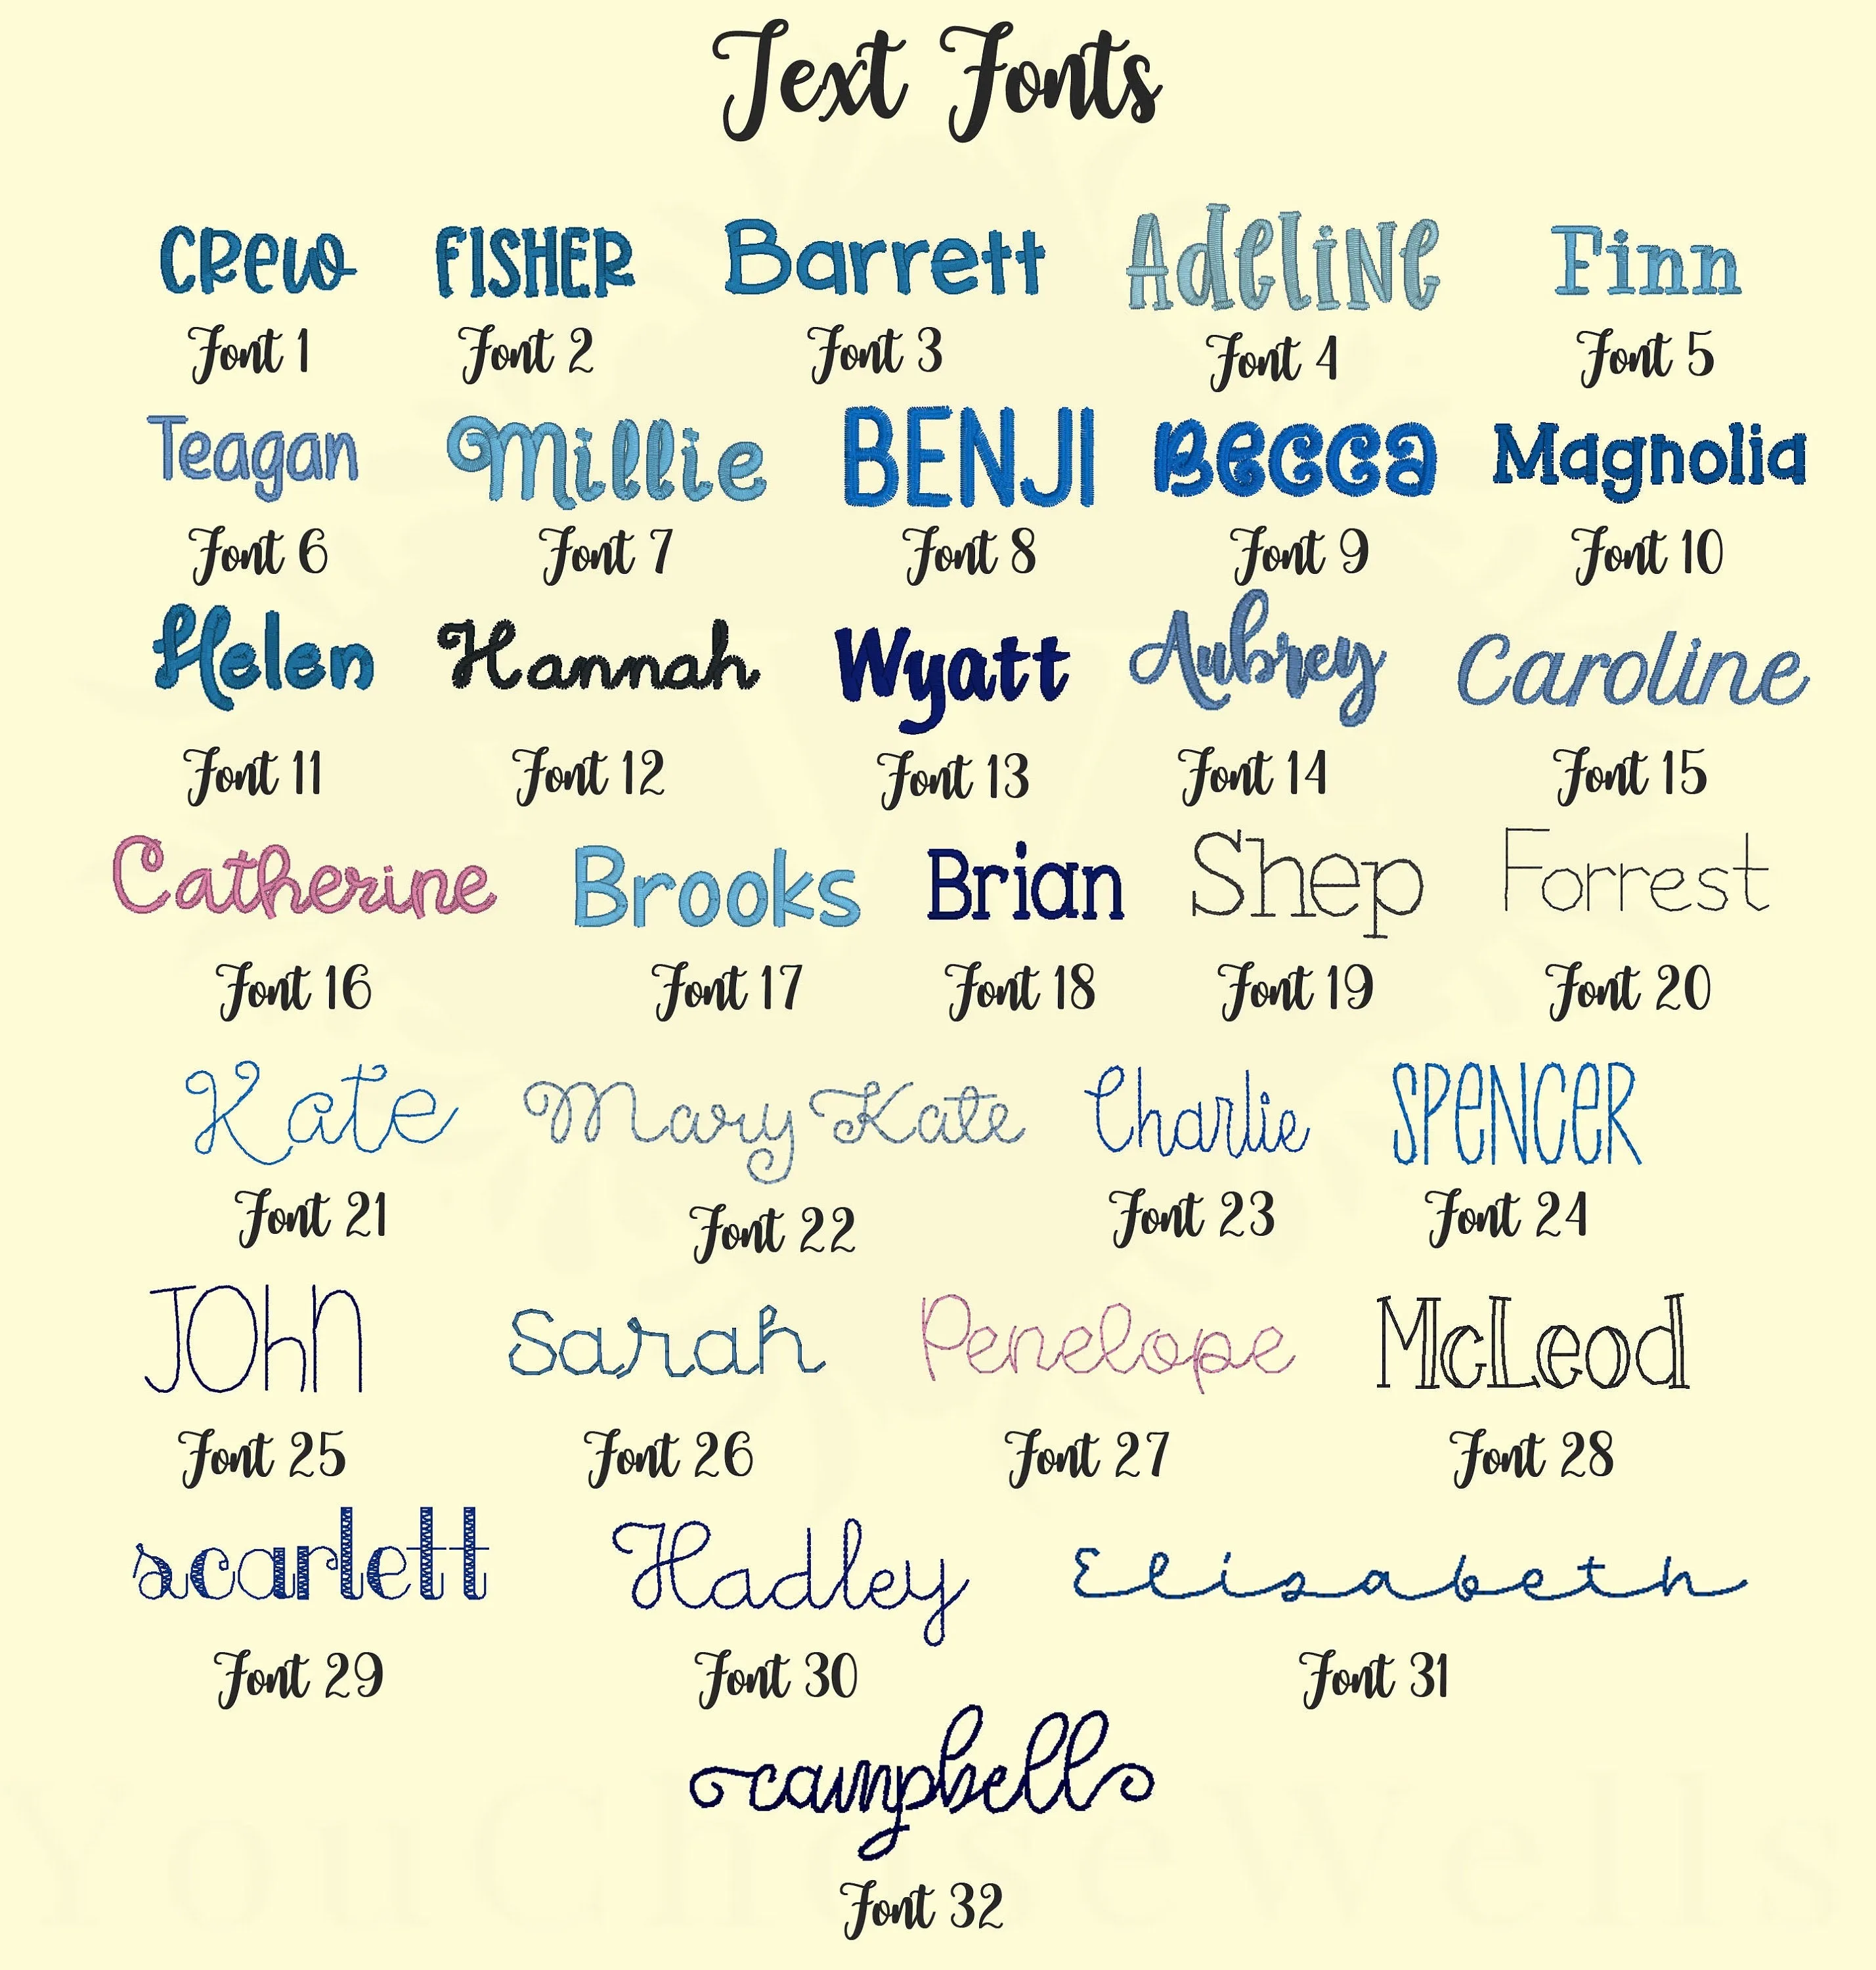 Text Fonts
Crew FISHER Barrett AdeliNe Finn
Font 1 Font 2 Font 3 Font 4 Font 5
Teagan Millie BENJI Becca Magnolia
Font 6 Font 7 Font 8 Font 9 Font 10
Helen Hannah Wyatt Aubrey Caroline
Font 11 Font 12 Font 13 Font 14 Font 15
Catherine Brooks Brian Shep Forrest
Font 16 Font 17 Font 18 Font 19 Font 20
Kate Mary Kate Charlie SPENCER
Font 21 Font 22 Font 23 Font 24
JOhn Sarah Penelope McLeod
Font 25 Font 26 Font 27 Font 28
scarlett Hadley Elisabeth
Font 29 Font 30 Font 31
campbell
YouChoseWells
Font 32